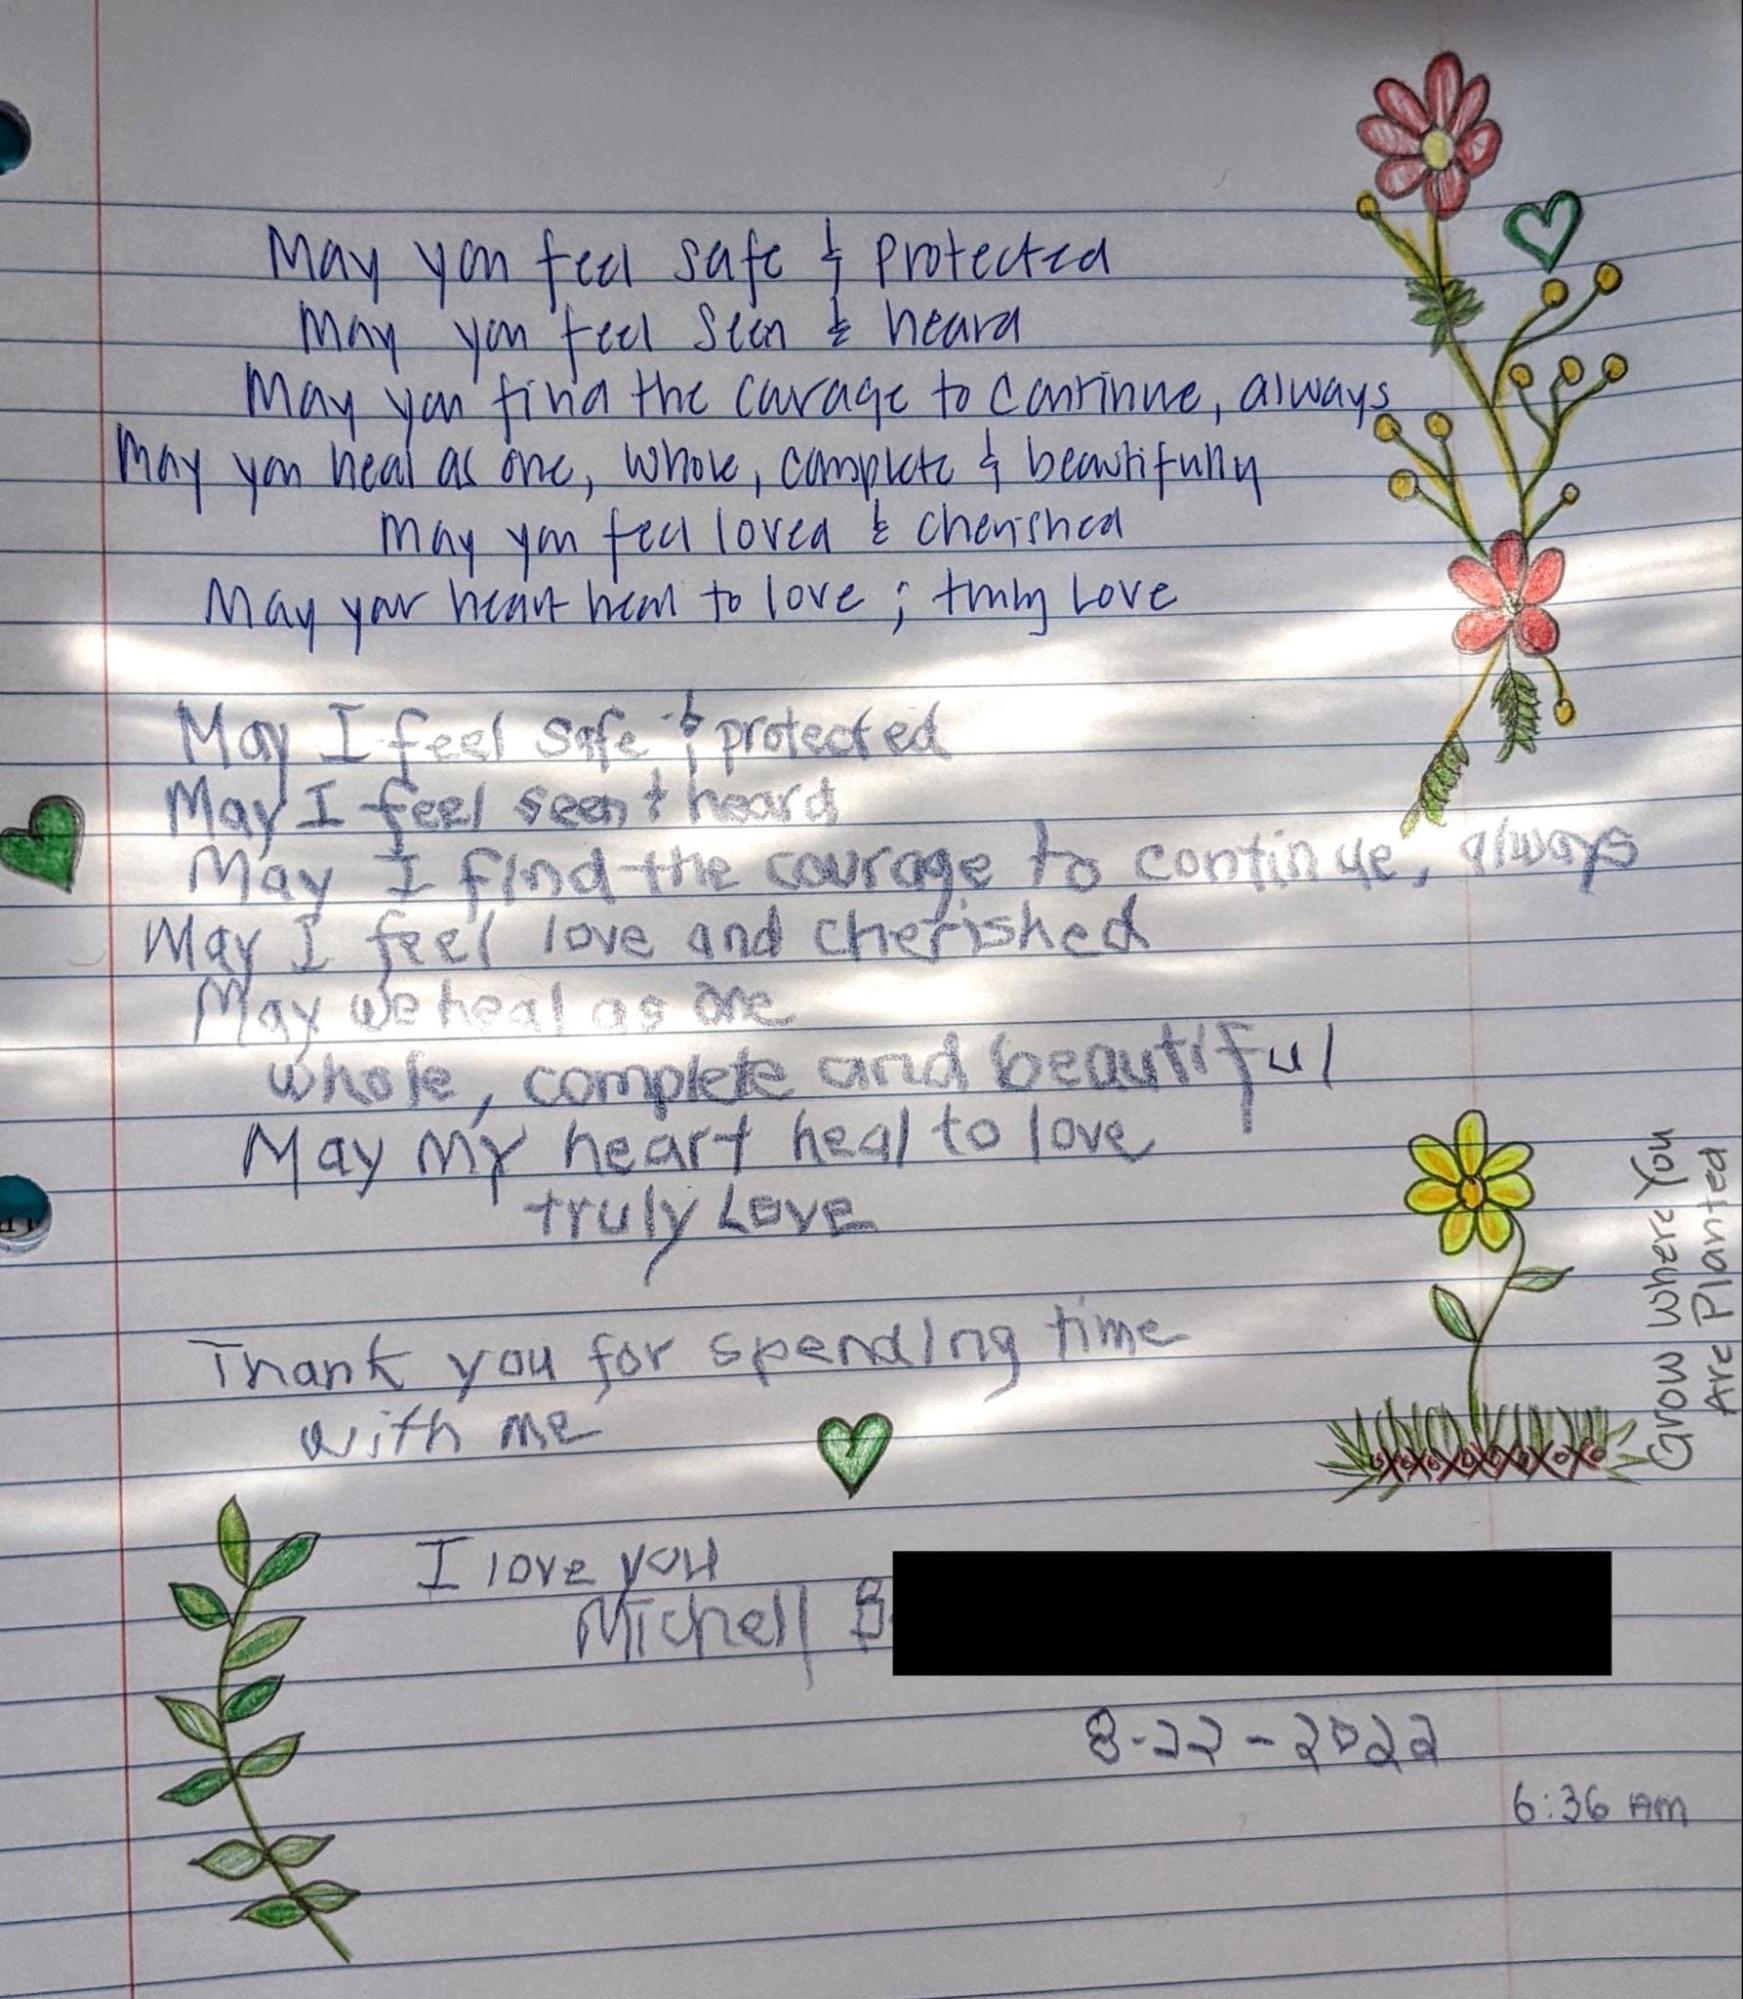 May you feel safe & protected
May you feel seen & heard
May you find the courage to continue, always
May you heal as one, whole, complete & beautifully
May you feel loved & cherished
May your heart heal to love ; truly Love
May I feel safe & protected
May I feel seen & heard
May I find the courage to continue, always
May I feel love and cherished
May we heal as one
whole, complete and beautiful
May my heart heal to love
truly Love
Thank you for spending time
with me
Grow Where You
Are Planted
I love you
Michell B
8-22-2022
6:36 AM